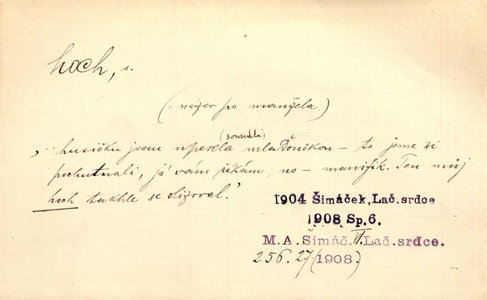 hoch, s.
(název po manžela)
„husičku jsem upekla (sousedka) mlaďounkou – to jsme si
pochutnali, já vám řeknu, no – manifik. Ten můj
hoch takhle se olizoval.“
1904 Šimáček, Lač. srdce
1908 Sp. 6.
M.A. Šimáč. II. Lač. srdce.
256. 27 (1908)